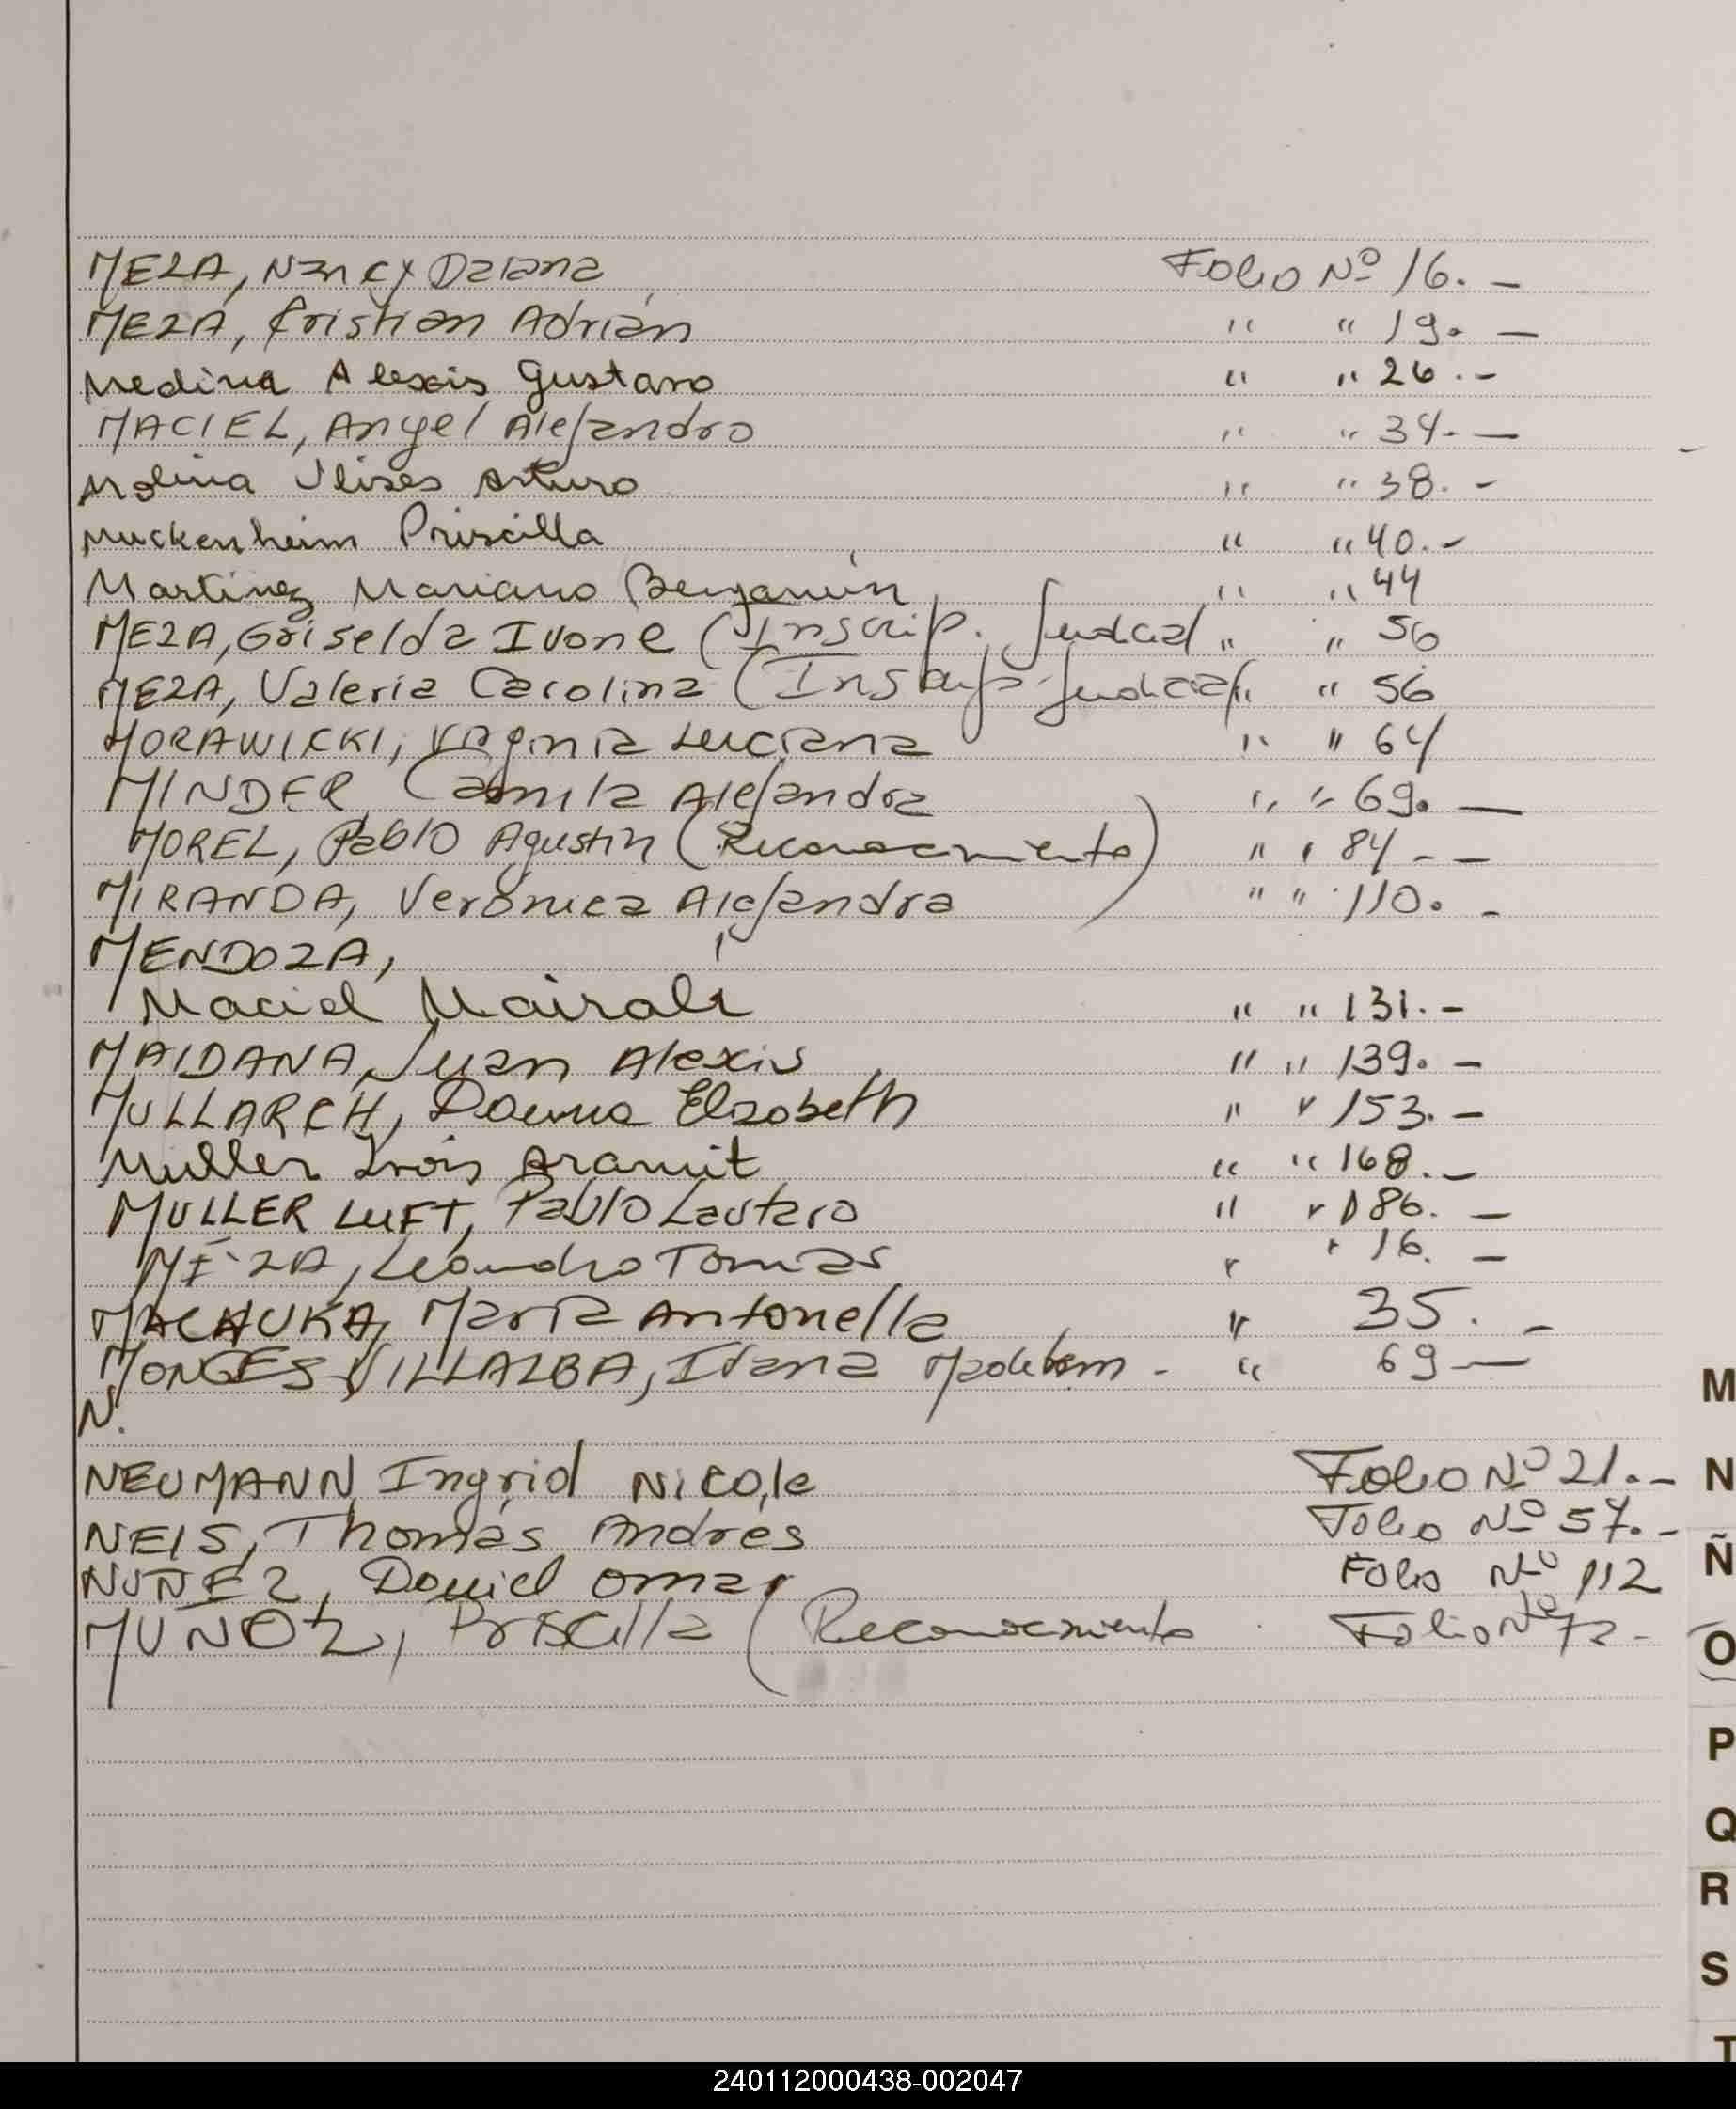 MEZA, Nancy Daiana Folio Nº 16. –
MEZA, Cristian Adrián " " 19. –
Medina Alexis Gustavo " " 26. –
MACIEL, Angel Alejandro " " 34. –
Molina Ulises Arturo " " 38. –
Muckenheim Priscilla " " 40. –
Martínez Mariano Benjamín " " 44
MEZA, Griselda Ivone (Inscrip. Judicial " " 56
MEZA, Valeria Carolina (Inscrip. Judicial " " 56
MORAWICKI, Virginia Luciana " " 64
MINDER Camila Alejandra " " 69. –
MOREL, Pablo Agustín (Reconocimiento) " " 84 – –
MIRANDA, Verónica Alejandra " " 110. –
MENDOZA,
Maciel Mairalí " " 131. –
MAIDANA, Juan Alexis " " 139. –
MULLARCH, Elizabeth " " 153. –
Muller Aramit " " 168. –
MULLER LUFT, Pablo Lautaro " " 186. –
MEZA, Leandro Tomás " " 16. –
MACHUKA, María Antonella " 35. –
MONGES VILLALBA, Ivana – " 69 –
N.
NEUMANN, Ingrid Nicole Folio Nº 21. –
NEIS, Thomás Andrés Folio Nº 57. –
NUÑEZ, Daniel Omar Folio Nº 112
MUÑOZ, Priscilla (Reconocimiento Folio Nº 72 –
M
N
Ñ
O
P
Q
R
S
T
240112000438-002047